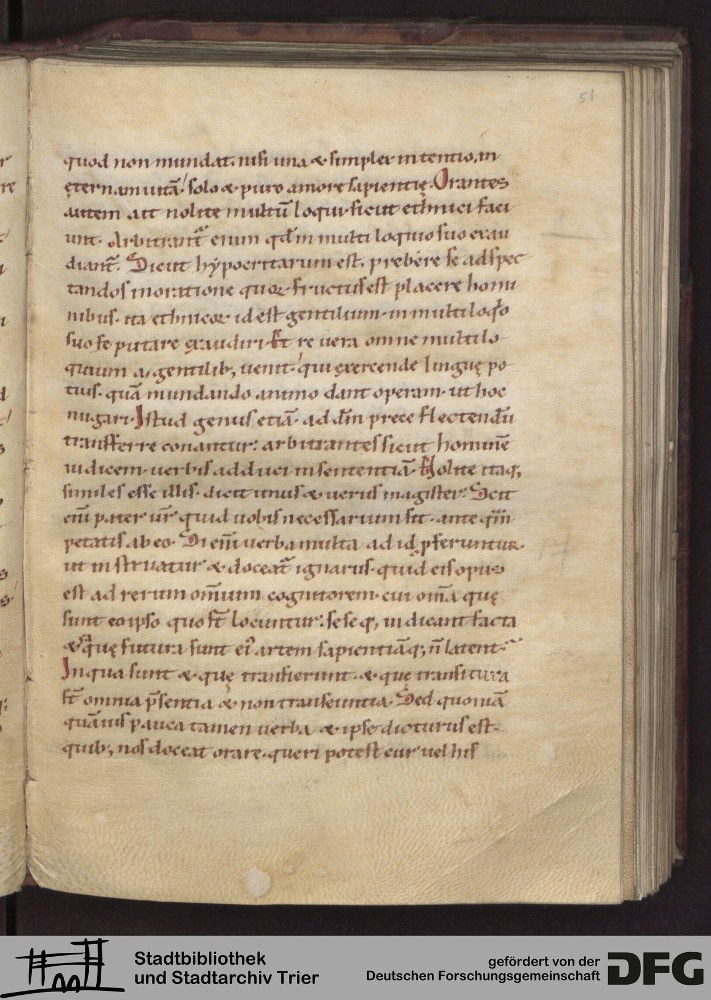 51
quod non mundat. nisi una & simplex intentio. in
ęternam uitā. solo & puro amore sapientię. Orantes
autem ait nolite multū loqui. sicut ethnici faci
unt. Arbitrant᷑ enim qđ in multiloquio suo exau
diant᷑. Sicut hypocritarum est. prebere se ad spec
tandos in oratione quoꝝ fructus est placere homi
nibus. ita ethnicoꝝ. id est gentilium. in multiloqͦo
suo se putare exaudiri. Et re uera omne multilo
quium a gentilib; uenit. qui exercende linguę po
tius. quā mundando animo dant operam. ut hoc
nugari. Istud genus etiā ad dm̄ prece flectendū
transferre conantur. arbitrantes sicut hominē
iudicem. uerbis adduci in sententiā. Nolite itaq;
similes esse illis. dicit unus & uerus magister. Scit
eni͞ pater ur̄ quid uobis necessarium sit. ante qm̄
petatis ab eo. Si eni͞ uerba multa ad id pferuntur.
ut instruatur & doceat᷑ ignarus. quid eis opus
est ad rerum om̄ium cognitorem. cui om̄a quę
sunt eo ipso quo st̄ locuntur. sese q; indicant facta
& quę futura sunt ei᷒ artem sapientiāq; n̄ latent.
In qua sunt & quę transierunt. & quę transitura
st̄ omnia p̄sentia & non transeuntia. Sed quoniā
quāuis pauca tamen uerba & ipse dicturus est.
quib; nos doceat orare. queri potest cur uel his
Stadtbibliothek
und Stadtarchiv Trier
gefördert von der
Deutschen Forschungsgemeinschaft
DFG